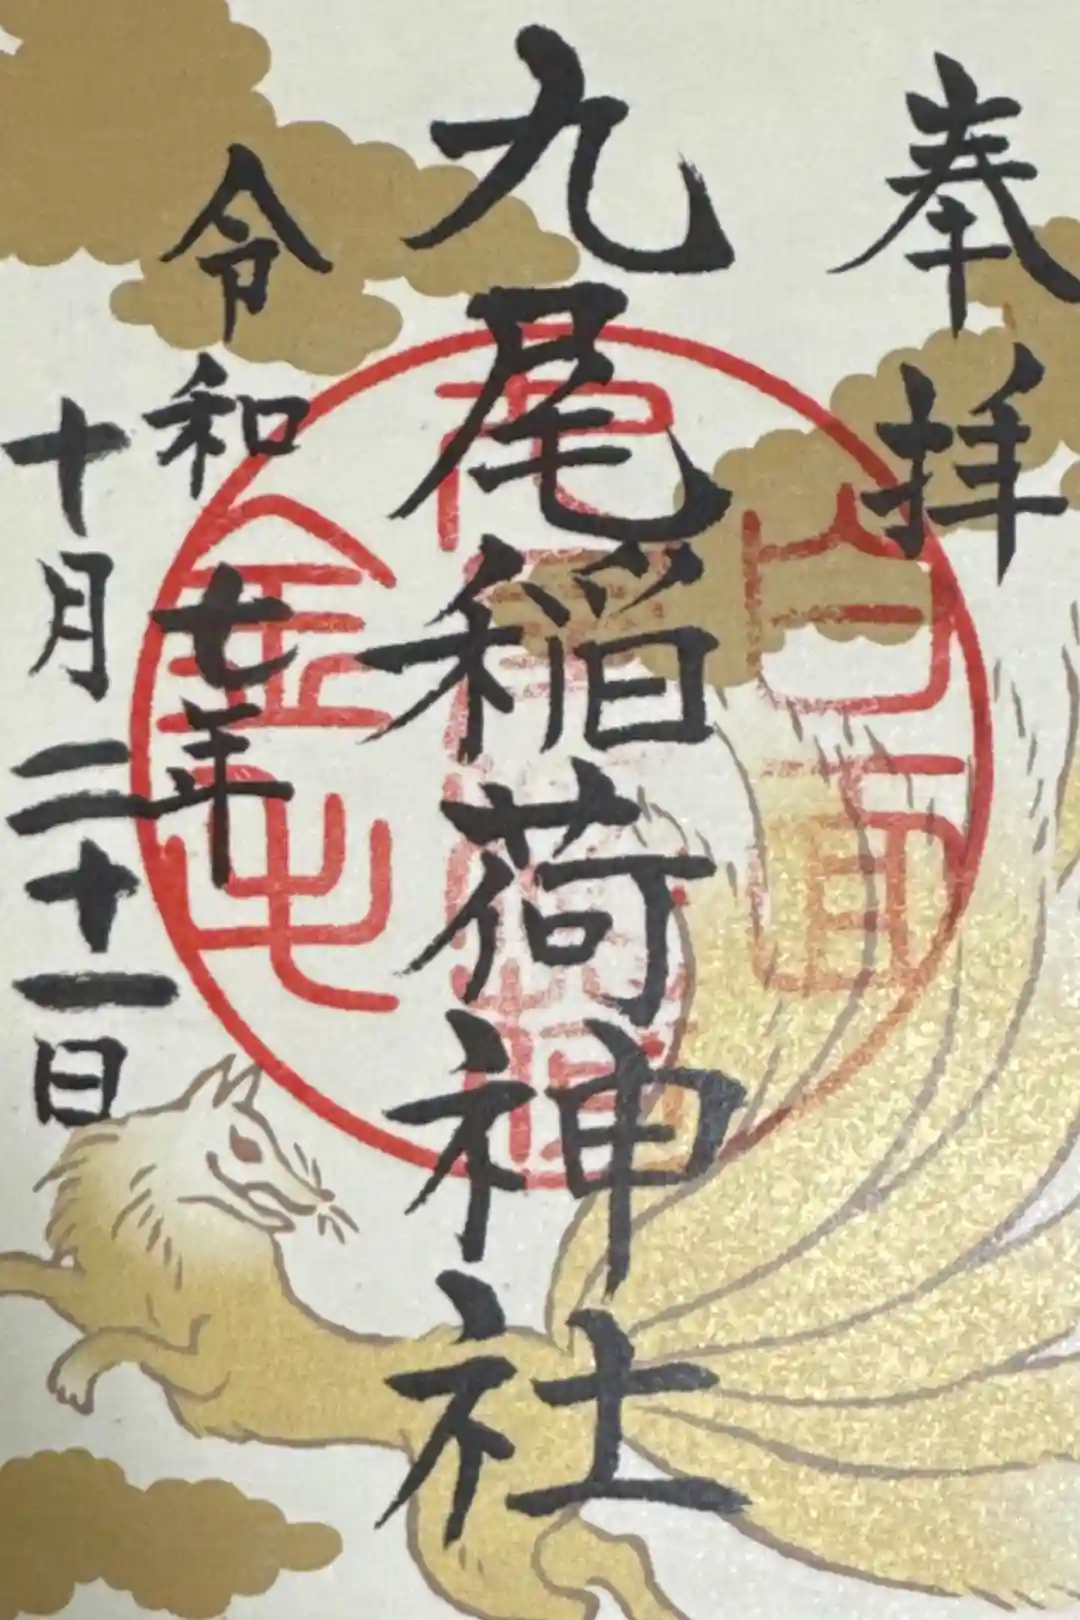 奉拝
九尾稲荷神社
令和七年
十月二十一日
白面
金毛